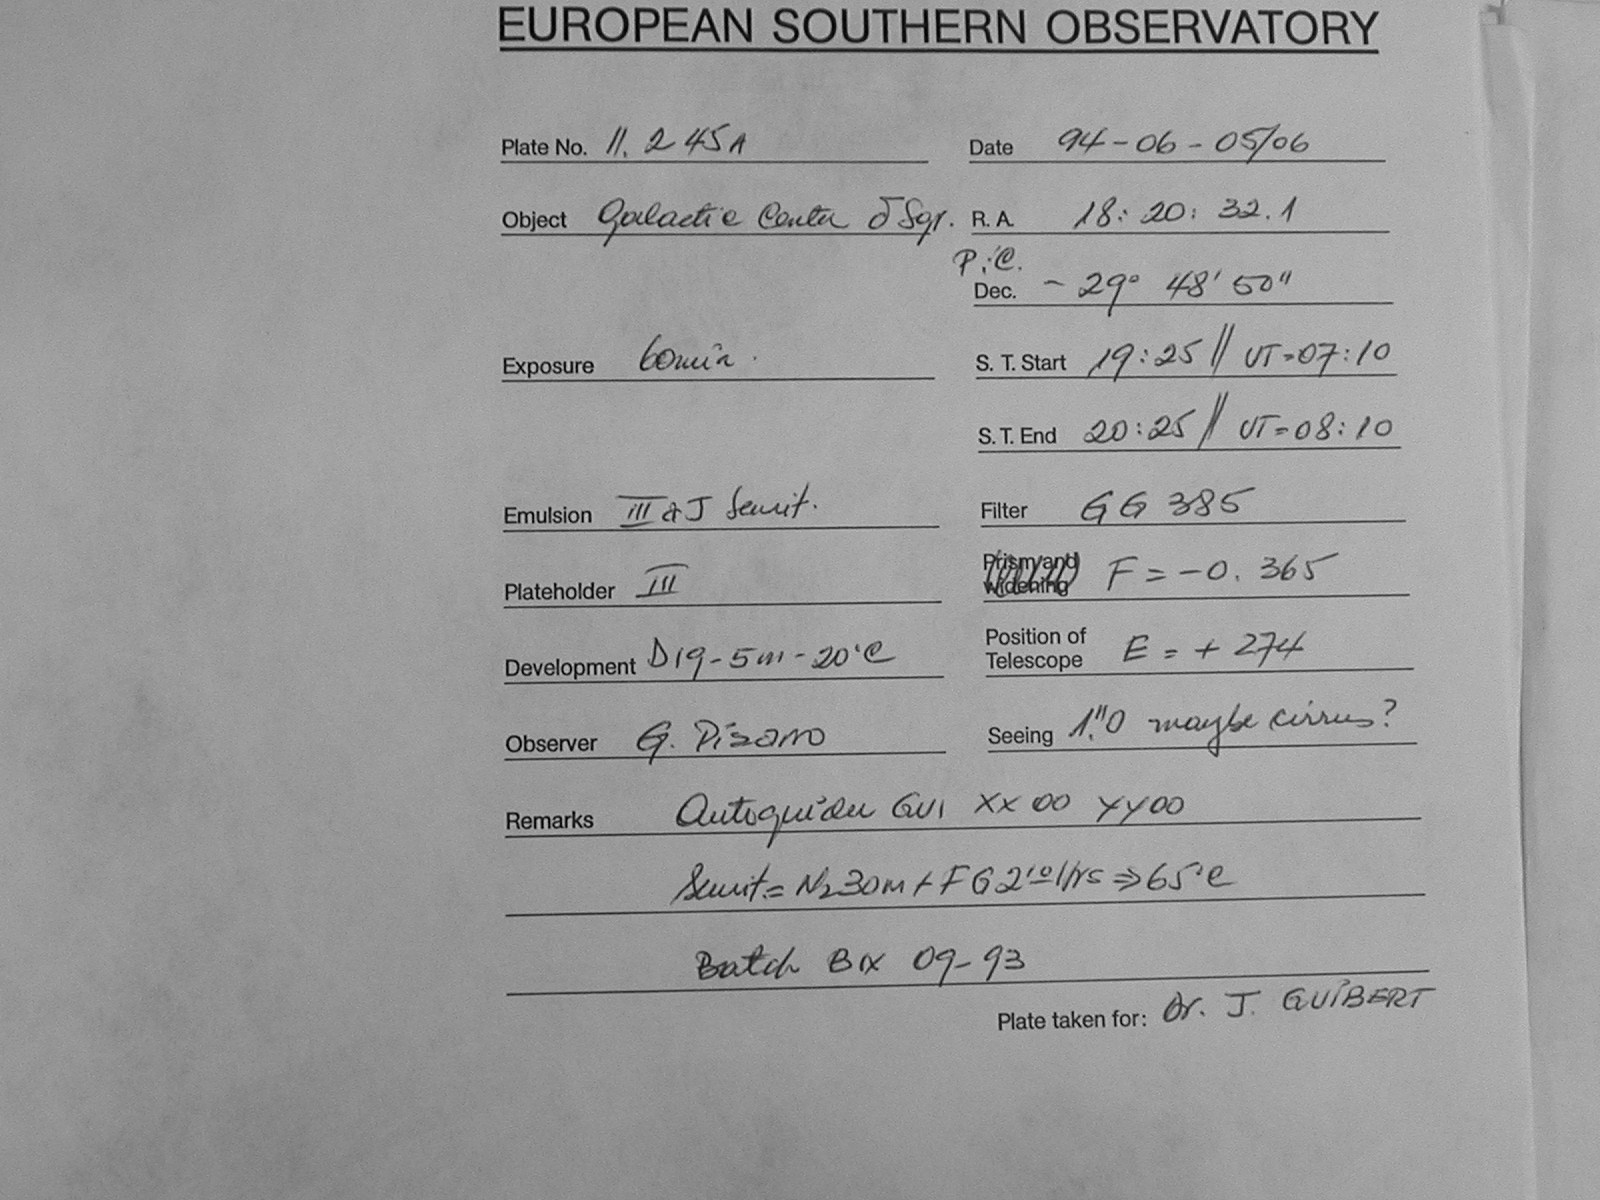 EUROPEAN SOUTHERN OBSERVATORY
Plate No. 11.245A Date 94-06-05/06
Object Galactic Center δ Sgr. R. A. 18: 20: 32.1
P.C.
Dec. - 29° 48' 50"
Exposure 60min. S. T. Start 19:25 // UT=07:10
S. T. End 20:25 // UT=08:10
Emulsion III a J Sensit. Filter GG 385
Plateholder III Prism and widening F = -0.365
Development D19-5m-20°C Position of Telescope E = + 274
Observer G. Pizarro Seeing 1."0 maybe cirrus?
Remarks Autoguider GV1 XX 00 YY00
Sensit.= N2 30m + FG 2 hrs ⇒ 65°C
Batch Box 09-93
Plate taken for: Dr. J. GUIBERT